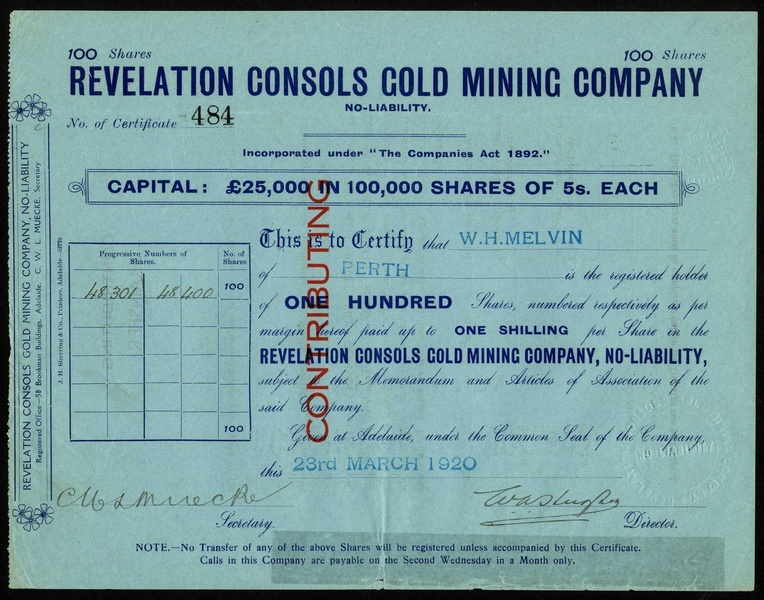 100 Shares
100 Shares
REVELATION CONSOLS GOLD MINING COMPANY
NO-LIABILITY.
No. of Certificate 484
Incorporated under "The Companies Act 1892."
CAPITAL: £25,000 IN 100,000 SHARES OF 5s. EACH
CONTRIBUTING
REVELATION CONSOLS GOLD MINING COMPANY, NO-LIABILITY
Registered Office—58 Brookman Buildings, Adelaide. C. W. L. MUECKE, Secretary
J. H. Sherring & Co., Printers, Adelaide
Progressive Numbers of Shares.
No. of Shares
48,301 48,400 100
100
This is to Certify that W.H.MELVIN
of PERTH is the registered holder
of ONE HUNDRED Shares, numbered respectively as per
margin hereof paid up to ONE SHILLING per Share in the
REVELATION CONSOLS GOLD MINING COMPANY, NO-LIABILITY,
subject to the Memorandum and Articles of Association of the
said Company.
Given at Adelaide, under the Common Seal of the Company,
this 23rd MARCH 1920
C W L Muecke
Secretary.
Director.
NOTE.—No Transfer of any of the above Shares will be registered unless accompanied by this Certificate.
Calls in this Company are payable on the Second Wednesday in a Month only.